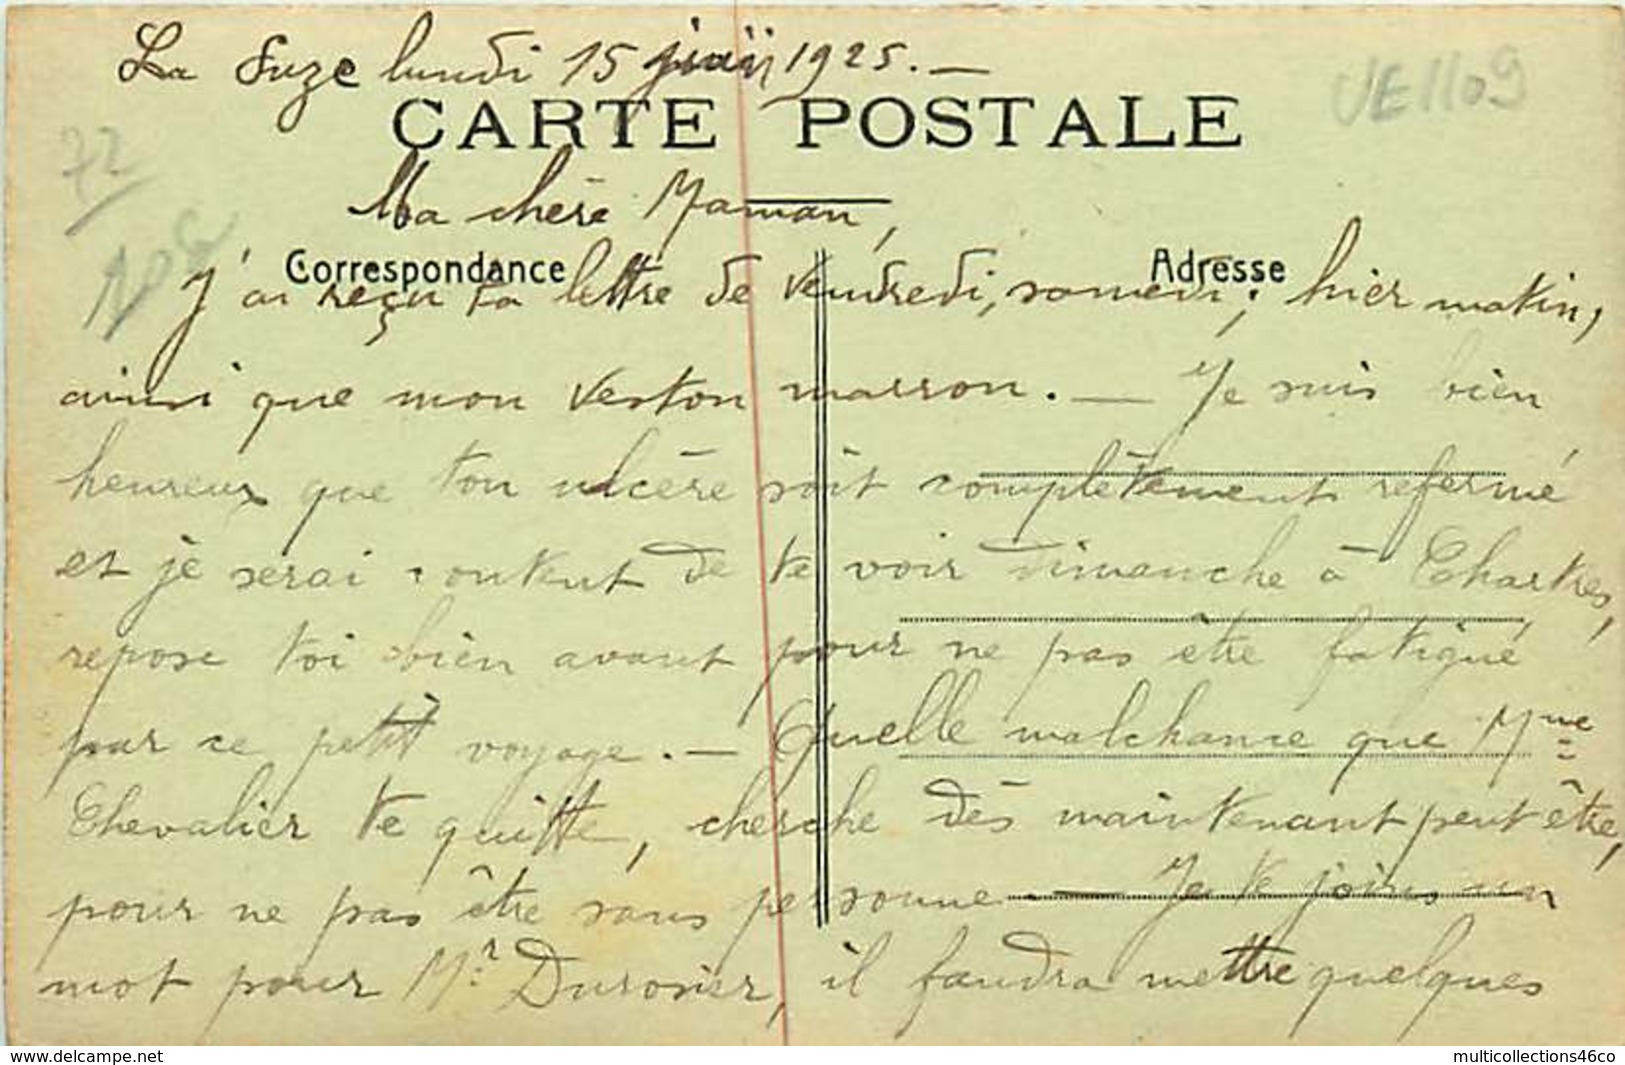 La Suze lundi 15 juin 1925. —
VE1109
CARTE POSTALE
72
Ma chère Maman,
Correspondance
Adresse
J'ai reçu ta lettre de vendredi, samedi, hier matin,
ainsi que mon veston marron. — Je suis bien
heureux que ton ulcère soit complètement refermé
et je serai content de te voir dimanche à Chartres,
repose toi bien avant pour ne pas être fatigué
par ce petit voyage. — Quelle malchance que Mme
Chevalier te quitte, cherche dès maintenant peut être,
pour ne pas être sans personne. — Je te joins un
mot pour Mr. Durosier, il faudra mettre quelques
www.delcampe.net
multicollections46co